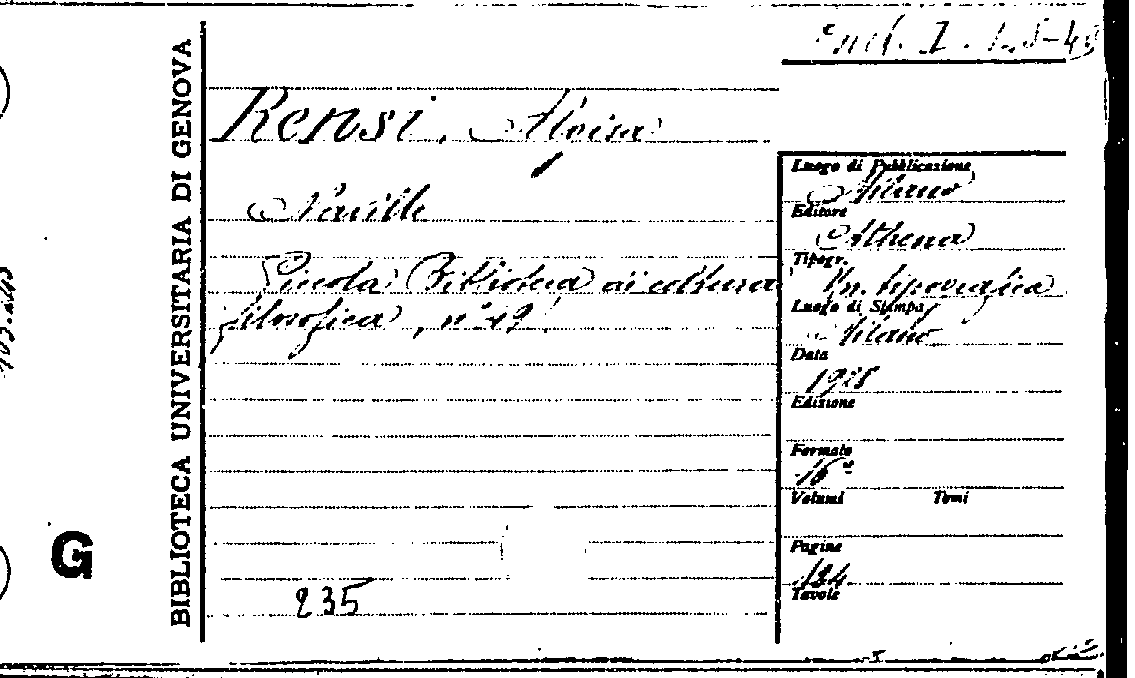 BIBLIOTECA UNIVERSITARIA DI GENOVA
G
Rensi, Aloisa
Naville
Piccola Biblioteca di coltura
filosofica, n° 49
235
Luogo di Pubblicazione
Milano
Editore
Athena
Tipogr.
Un. tipografica
Luogo di Stampa
Milano
Data
1928
Edizione
Formato
16°
Volumi Tomi
Pagine
124
Tavole